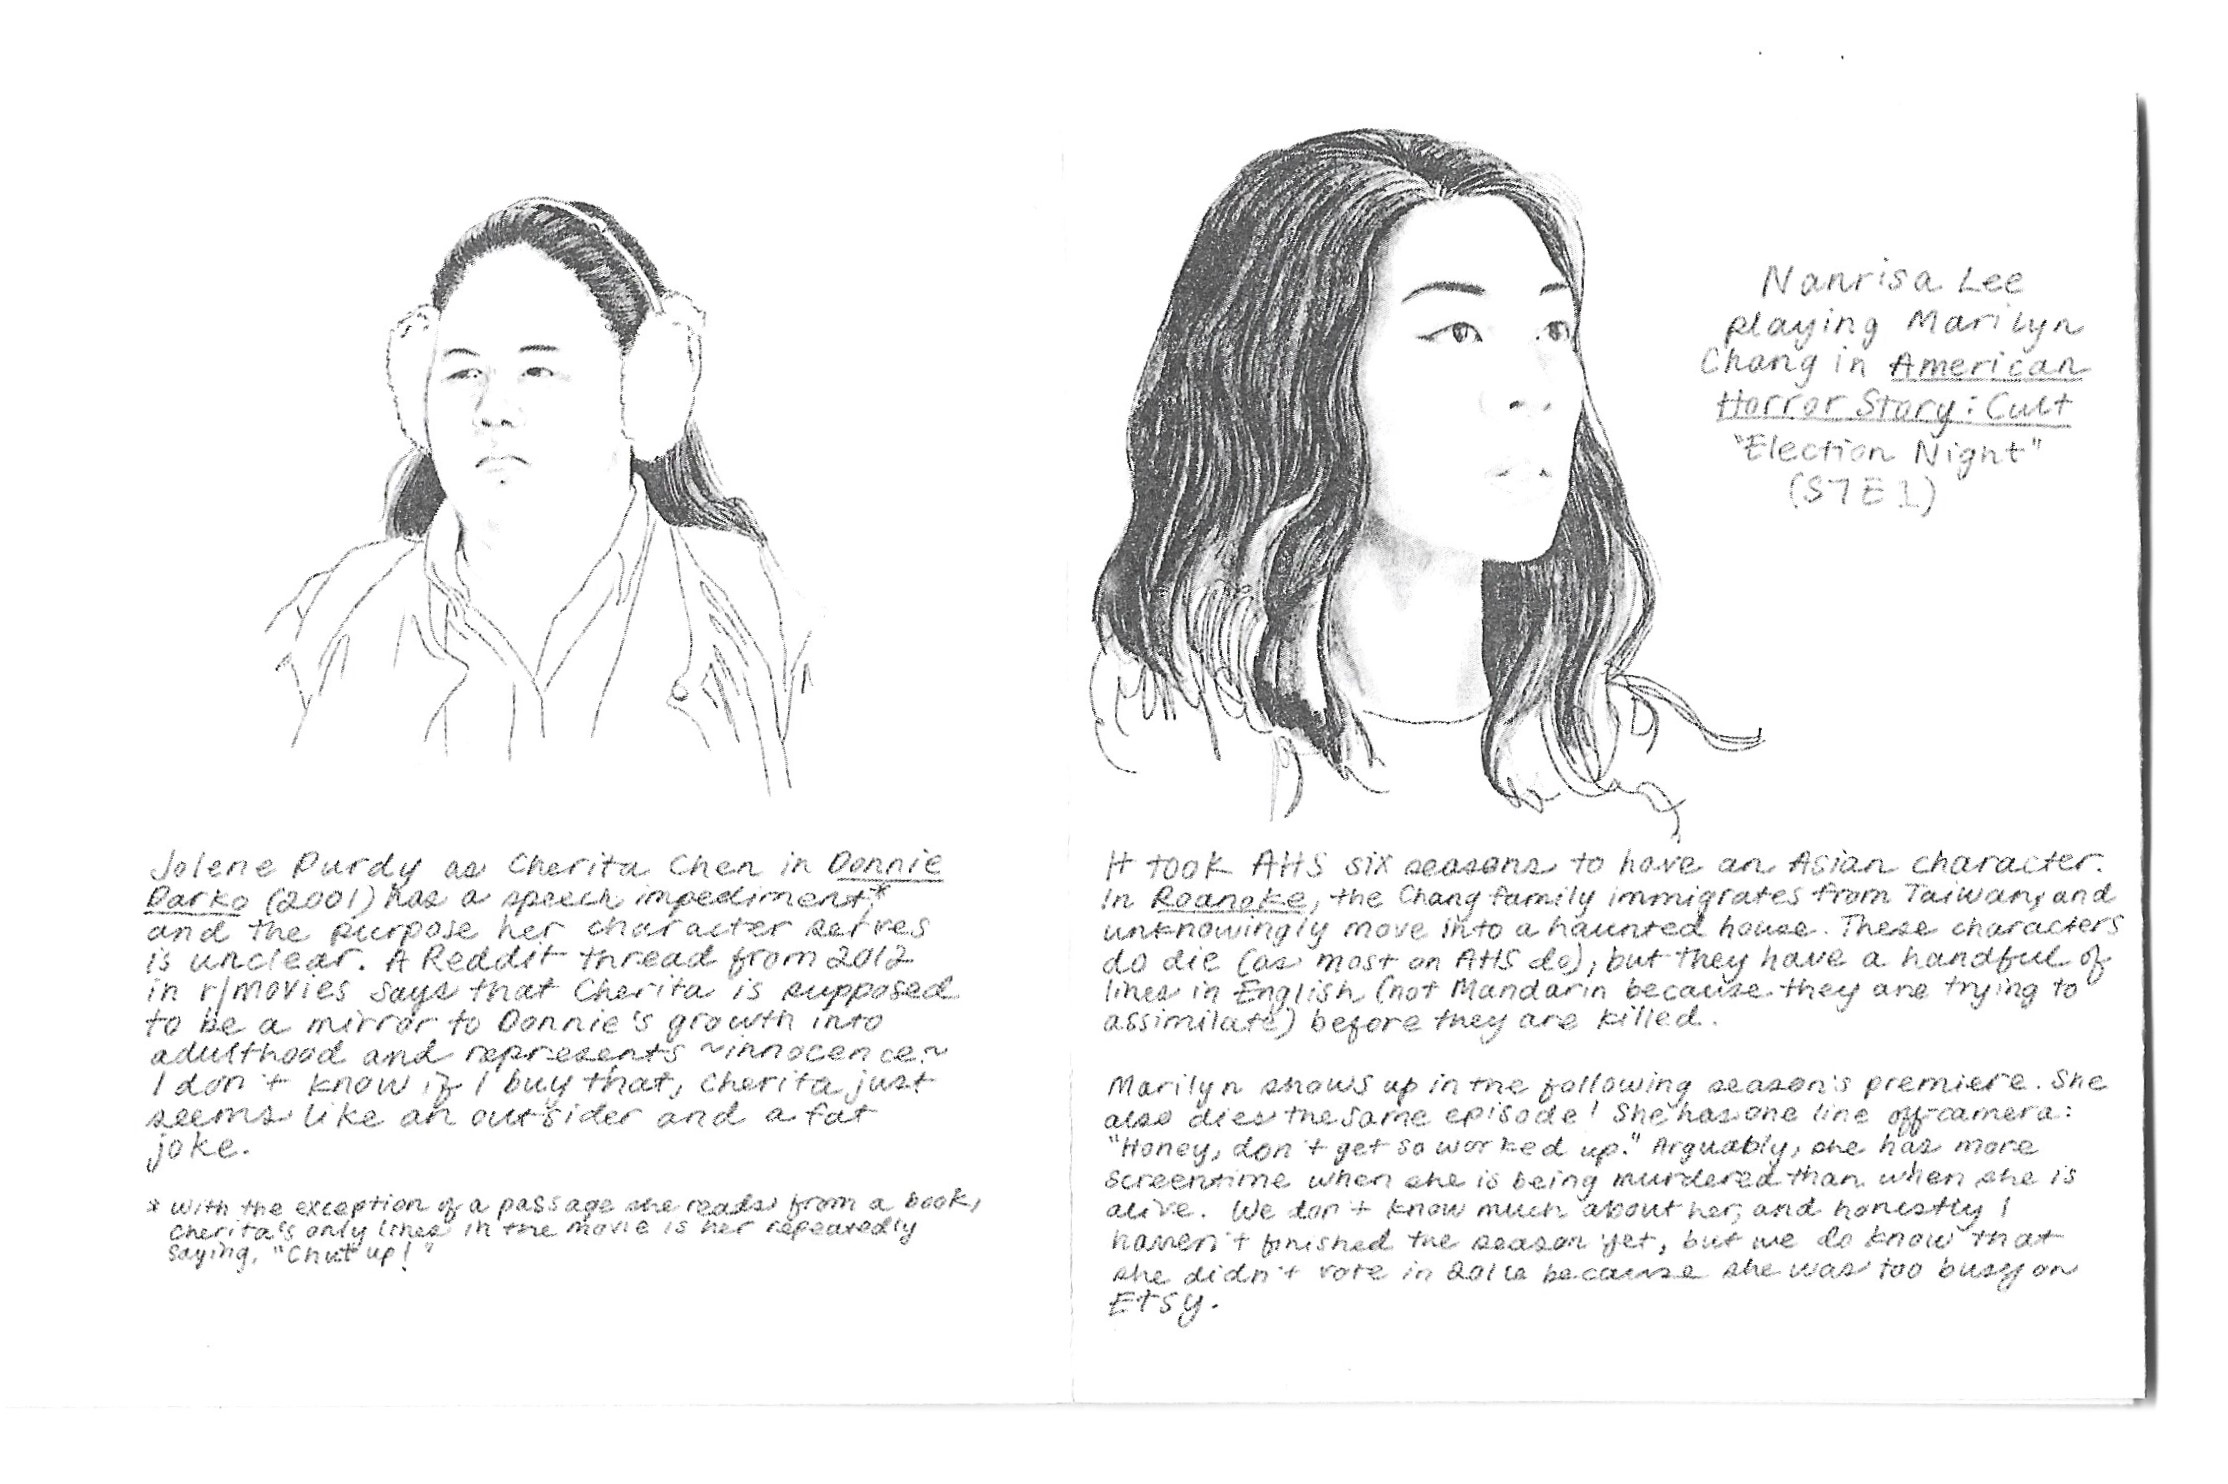 Jolene Purdy as Cherita Chen in Donnie
Darko (2001) has a speech impediment*
and the purpose her character serves
is unclear. A Reddit thread from 2012
in r/movies says that Cherita is supposed
to be a mirror to Donnie's growth into
adulthood and represents ~innocence~
I don't know if I buy that, Cherita just
seems like an outsider and a fat
joke.
* With the exception of a passage she reads from a book,
Cherita's only lines in the movie is her repeatedly
saying, "Chut up!"
Nanrisa Lee
playing Marilyn
Chang in American
Horror Story: Cult
"Election Night"
(S7E1)
It took AHS six seasons to have an Asian character.
In Roanoke, the Chang family immigrates from Taiwan, and
unknowingly move into a haunted house. These characters
do die (as most on AHS do), but they have a handful of
lines in English (not Mandarin because they are trying to
assimilate) before they are killed.
Marilyn shows up in the following season's premiere. She
also dies the same episode! She has one line off-camera:
"Honey, don't get so worked up." Arguably, she has more
screentime when she is being murdered than when she is
alive. We don't know much about her, and honestly I
haven't finished the season yet, but we do know that
she didn't vote in 2016 because she was too busy on
Etsy.